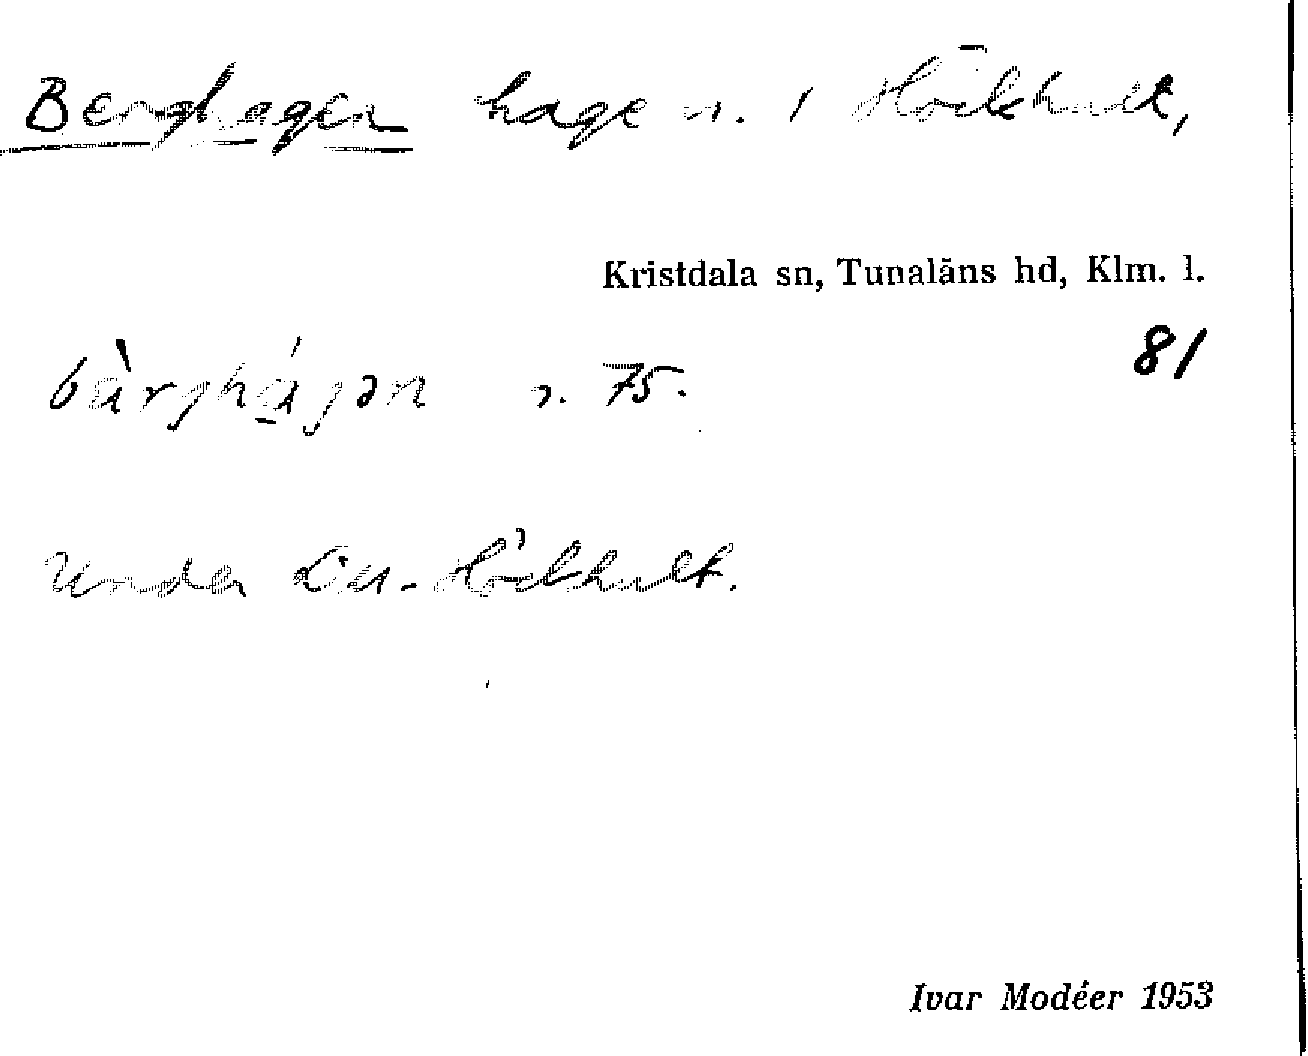 Berghagen hage n. i Hökhult,
Kristdala sn, Tunaläns hd, Klm. l.
81
bàrghágən n. 75.
Under Lu-Hökhult.
Ivar Modéer 1953